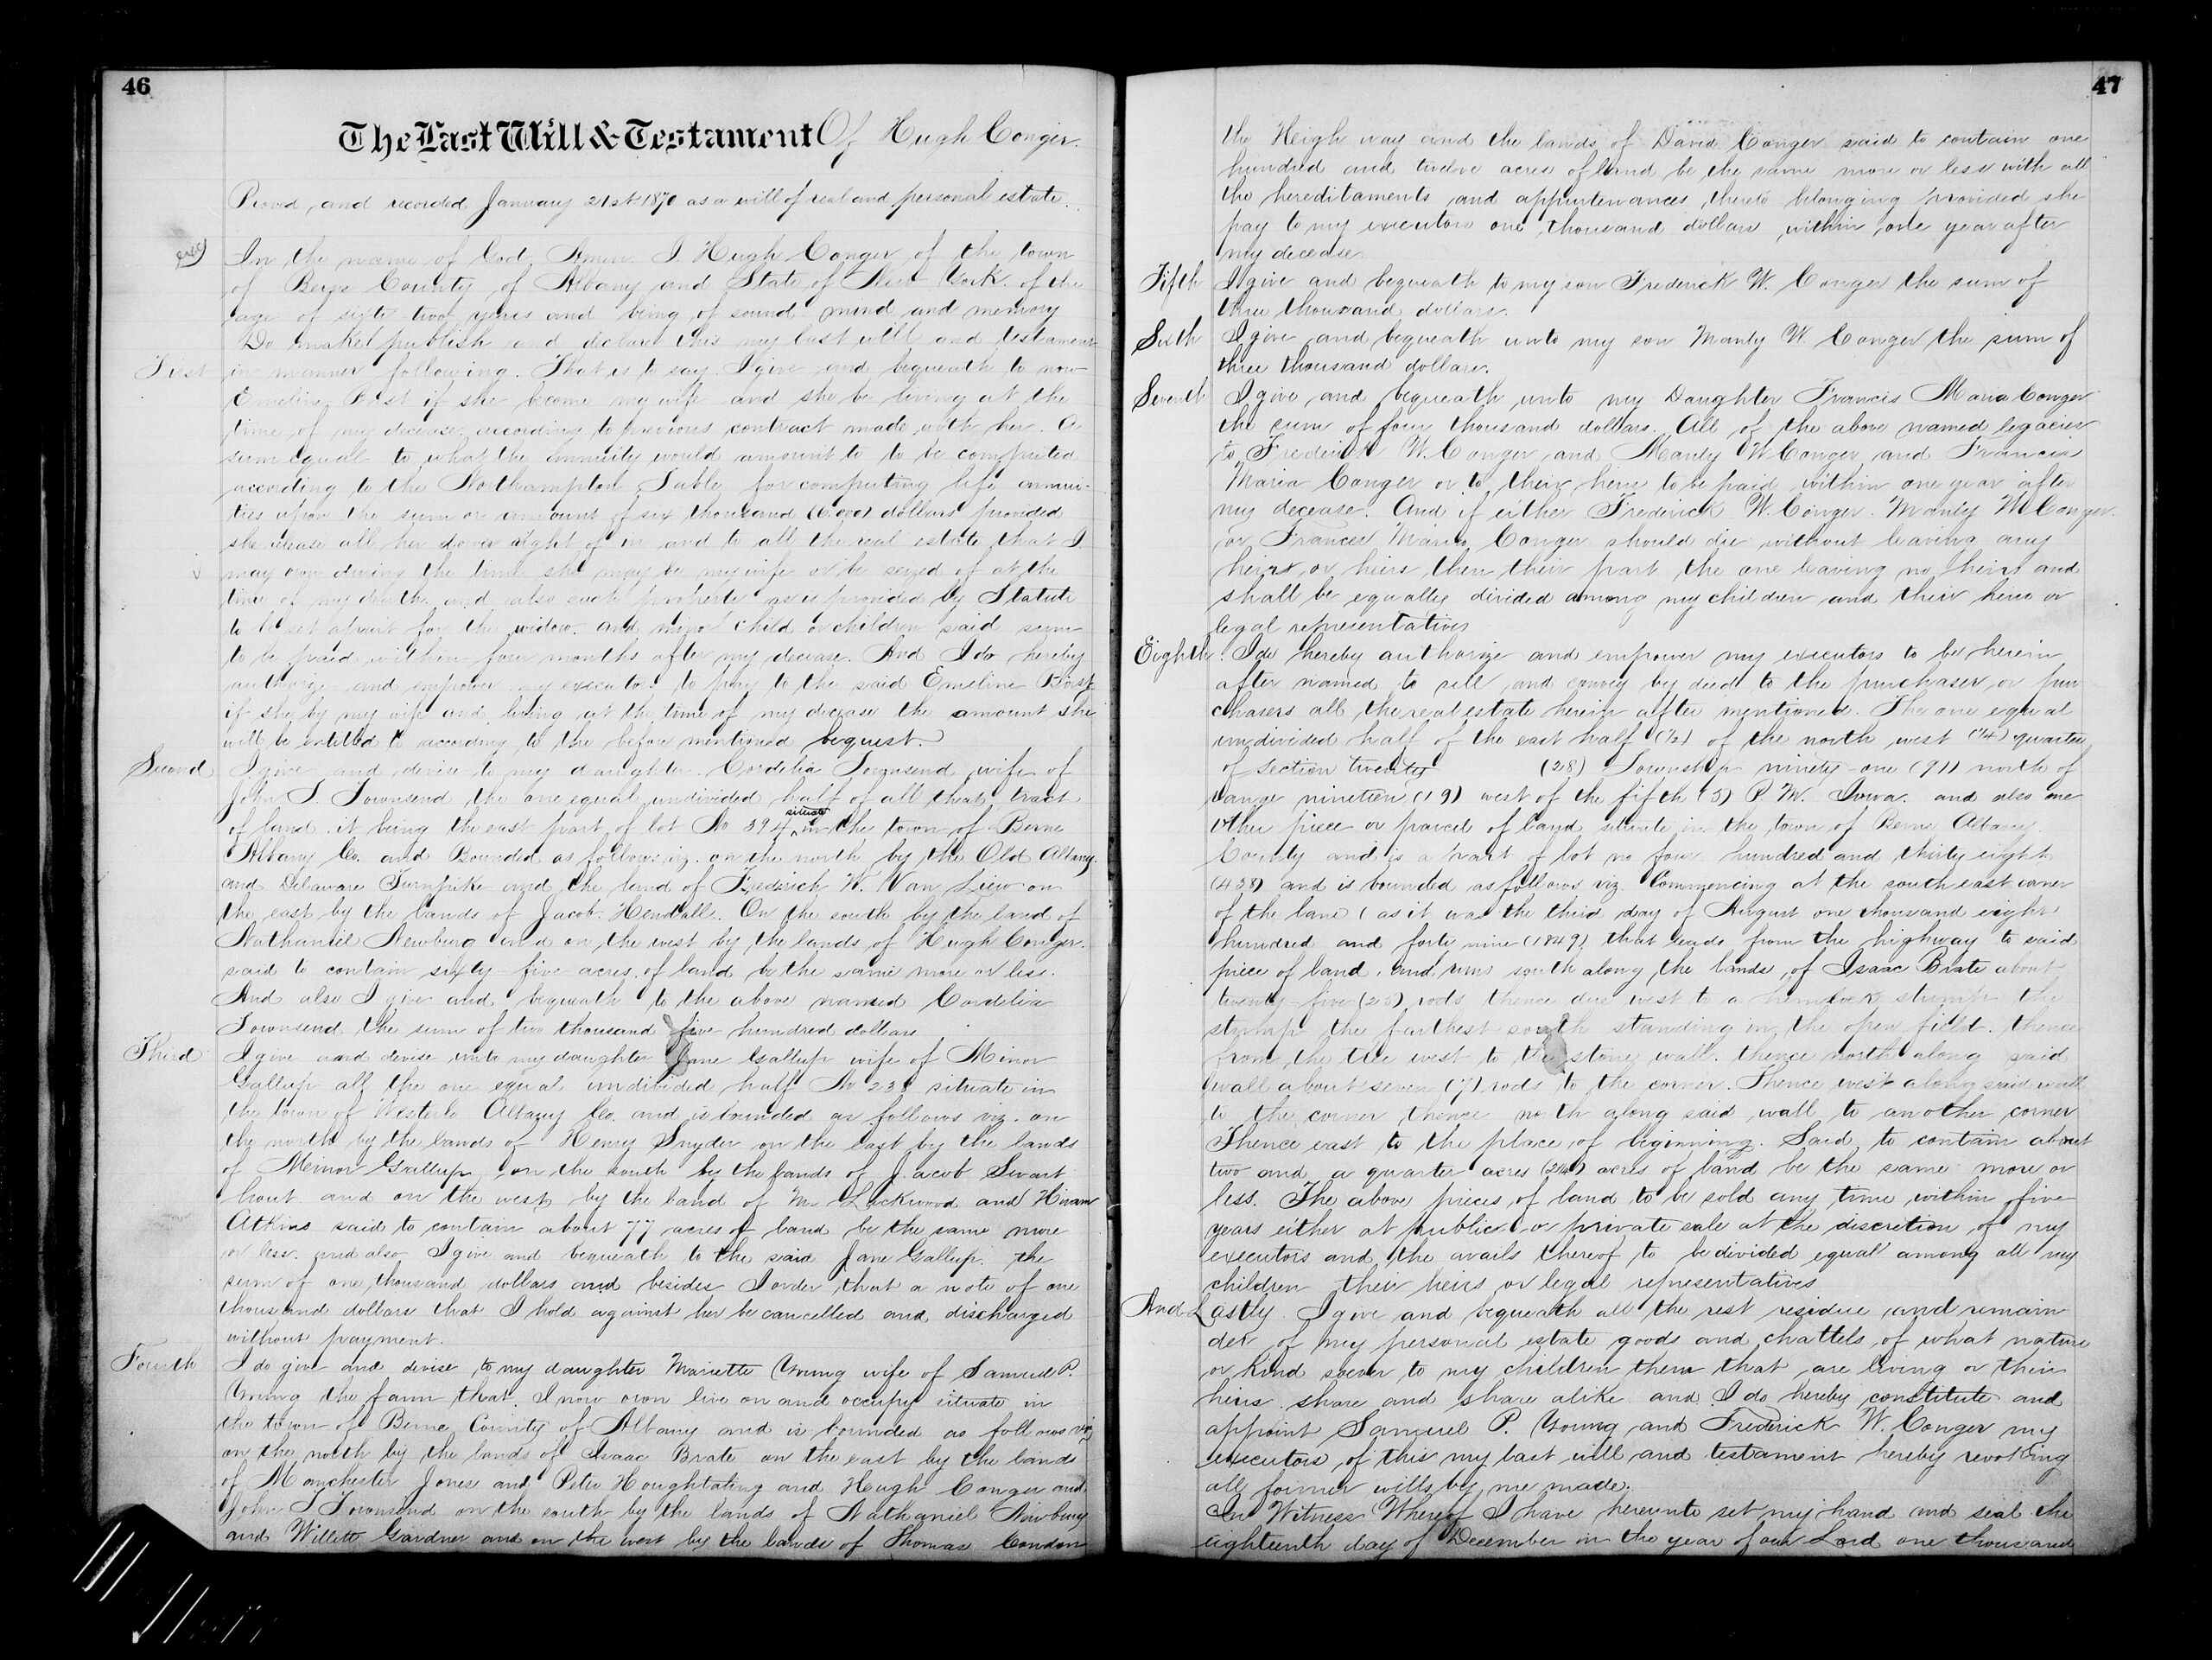 46
The Last Will & Testament Of Hugh Conger.
Proved and recorded January 21st 1870 as a will of real and personal estate.
In the name of God Amen. I Hugh Conger of the town
of Berne County of Albany and State of New York. of the
age of sixty two years and being of sound mind and memory
Do make publish and declare this my last will and testament
First in manner following. That is to say. I give and bequeath to now
Emeline Bost if she become my wife and she be living at the
time of my decease according to previous contract made with her. A
sum equal to what the annuity would amount to to be computed
according to the Northampton Table for computing life annui-
ties upon the sum or amount of six thousand (6.000) dollars provided
she release all her dower right of in and to all the real estate that I
may own during the time she may be my wife or be seized of at the
time of my death and also such property as is provided by Statute
to be set apart for the widow. and minor child or children said sum
to be paid within four months after my decease. And I do hereby
authorize and empower my executors to pay to the said Emeline Bost
if she by my wife and living at the time of my decease the amount she
will be entitled to according to the before mentioned bequest.
Second I give and devise to my daughter Cordelia Townsend wife of
John S. Townsend the one equal undivided half of all that tract
of land it being the east part of lot No 394 situate in the town of Berne
Albany Co. and Bounded as follows viz. on the north by the Old Albany
and Delaware Turnpike and the land of Frederick W. Van Liew on
the east by the lands of Jacob Hendall. On the south by the land of
Nathaniel Newburg and on the west by the lands of Hugh Conger.
said to contain sixty five acres of land be the same more or less.
And also I give and bequeath to the above named Cordelia
Townsend the sum of two thousand five hundred dollars
Third I give and devise unto my daughter Jane Gallup wife of Minor
Gallup all the one equal undivided half No 238 situate in
the town of Westerlo Albany Co. and is bounded as follows viz. on
the north by the lands of Henry Snyder on the east by the lands
of Meinor Gallup on the south by the lands of Jacob Swart
hout and on the west by the land of Mr Lockwood and Hiram
Atkins said to contain about 77 acres of land be the same more
or less. and also I give and bequeath to the said Jane Gallup. the
sum of one thousand dollars and besides I order that a note of one
thousand dollars that I hold against her be cancelled and discharged
without payment.
Fourth I do give and devise to my daughter Mariette Young wife of Samuel P.
Young the farm that I now own live on and occupy situate in
the town of Berne County of Albany and is bounded as follows viz
on the north by the lands of Isaac Brate on the east by the lands
of Manchester Jones and Peter Houghtaling and Hugh Conger and
John S Townsend on the south by the lands of Nathaniel Newbury
and Willett Gardner and on the west by the lands of Thomas Condon
47
the Heigh way and the lands of David Conger said to contain one
hundred and twelve acres of land be the same more or less with all
the hereditaments and appurtenances thereto belonging provided she
pay to my executors one thousand dollars within one year after
my decease
Fifth I give and bequeath to my son Frederick W. Conger the sum of
three thousand dollars.
Sixth I give and bequeath unto my son Manly W. Conger the sum of
three thousand dollars.
Seventh I give and bequeath unto my Daughter Francis Maria Conger
the sum of four thousand dollars. All of the above named legacies
to Frederick W. Conger and Manly W Conger and Francis
Maria Conger or to their heirs to be paid within one year after
my decease. And if either Frederick W. Conger. Manly W Conger.
or Frances Maria Conger should die without leaving any
heirs or heirs then their part the one leaving no heirs and
shall be equally divided among my children and their heirs or
legal representatives
Eighth. I do hereby authorize and empower my executors to be herein
after named to sell and convey by deed to the purchaser or pur
chasers all the real estate herein after mentioned. The one equal
undivided half of the east half (1/2) of the north west (1/4) quarter
of section twenty (28) Township ninety-one (91) north of
range nineteen (19) west of the fifth (5) P. M. Iowa. and also one
other piece or parcel of land situate in the town of Berne Albany
County and is a part of lot no four hundred and thirty eight
(438) and is bounded as follows viz. Commencing at the south east corner
of the lane (as it was the third day of August one thousand eight
hundred and forty nine (1849) that leads from the highway to said
piece of land. and runs south along the lands of Isaac Brate about
twenty-five (25) rods thence due west to a hemlock stump the
stump the farthest south standing in the open field. thence
from the tree west to the stone wall. thence north along said
wall about seven (7) rods to the corner. Thence west along said wall
to the corner thence north along said wall to another corner
Thence east to the place of beginning. Said to contain about
two and a quarter acres (2 1/4) acres of land be the same more or
less. The above pieces of land to be sold any time within five
years either at public or private sale at the discretion of my
executors and the avails thereof to be divided equal among all my
children their heirs or legal representatives
And Lastly I give and bequeath all the rest residue and remain
der of my personal estate goods and chattels of what nature
or kind soever to my children them that are living or their
heirs share and share alike and I do hereby constitute and
appoint Samuel P. Young and Frederick W. Conger my
executors of this my last will and testament hereby revoking
all former wills by me made.
In Witness Whereof I have hereunto set my hand and seal the
eighteenth day of December in the year of our Lord one thousand